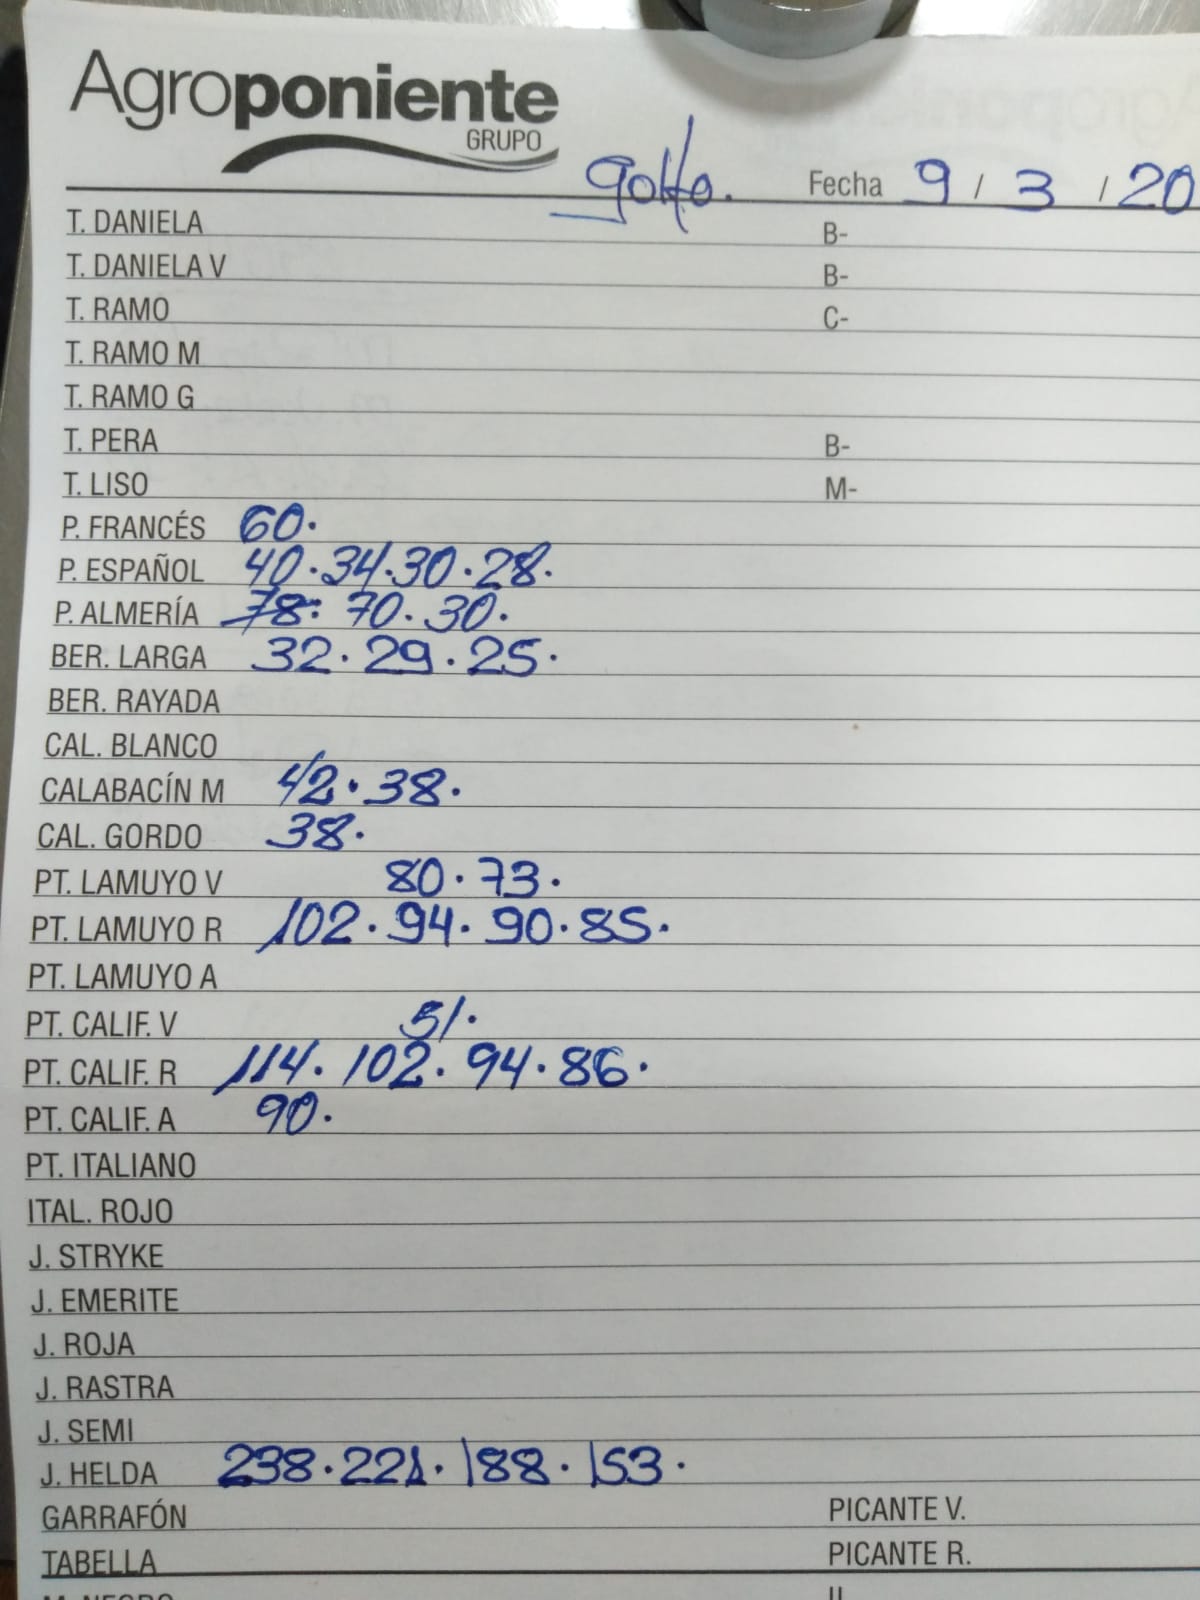 Agroponiente
GRUPO
golfo. Fecha 9 / 3 / 20
T. DANIELA B-
T. DANIELA V B-
T. RAMO C-
T. RAMO M
T. RAMO G
T. PERA B-
T. LISO M-
P. FRANCÉS 60.
P. ESPAÑOL 40.34.30.28.
P. ALMERÍA 78. 70. 30.
BER. LARGA 32.29.25.
BER. RAYADA
CAL. BLANCO
CALABACÍN M 42.38.
CAL. GORDO 38.
PT. LAMUYO V 80.73.
PT. LAMUYO R 102.94.90.85.
PT. LAMUYO A
PT. CALIF. V 51.
PT. CALIF. R 114.102.94.86.
PT. CALIF. A 90.
PT. ITALIANO
ITAL. ROJO
J. STRYKE
J. EMERITE
J. ROJA
J. RASTRA
J. SEMI
J. HELDA 238.221.188.153.
GARRAFÓN PICANTE V.
TABELLA PICANTE R.